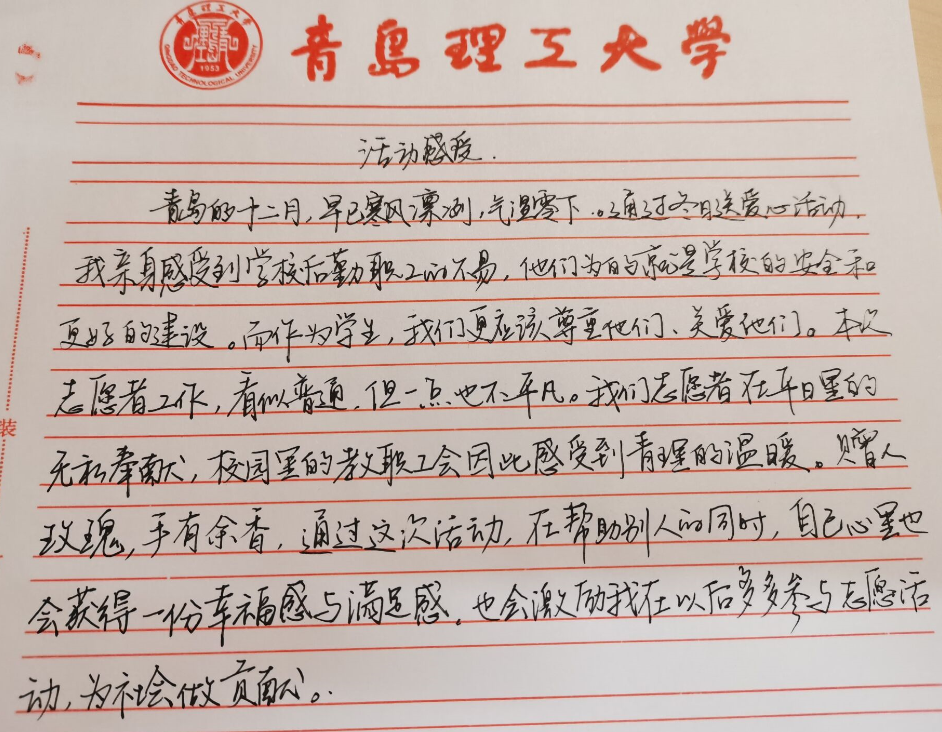 青岛理工大学
QINGDAO TECHNOLOGICAL UNIVERSITY
1953
活动感受.
青岛的十二月,早已寒风凛冽,气温零下。通过冬日送爱心活动,
我亲身感受到学校后勤职工的不易,他们为的就是学校的安全和
更好的建设。而作为学生,我们更应该尊重他们、关爱他们。本次
志愿者工作,看似普通,但一点也不平凡。我们志愿者在平日里的
无私奉献,校园里的教职工会因此感受到青理的温暖。赠人
玫瑰,手有余香,通过这次活动,在帮助别人的同时,自己心里也
会获得一份幸福感与满足感,也会激励我在以后多多参与志愿活
动,为社会做贡献。
装